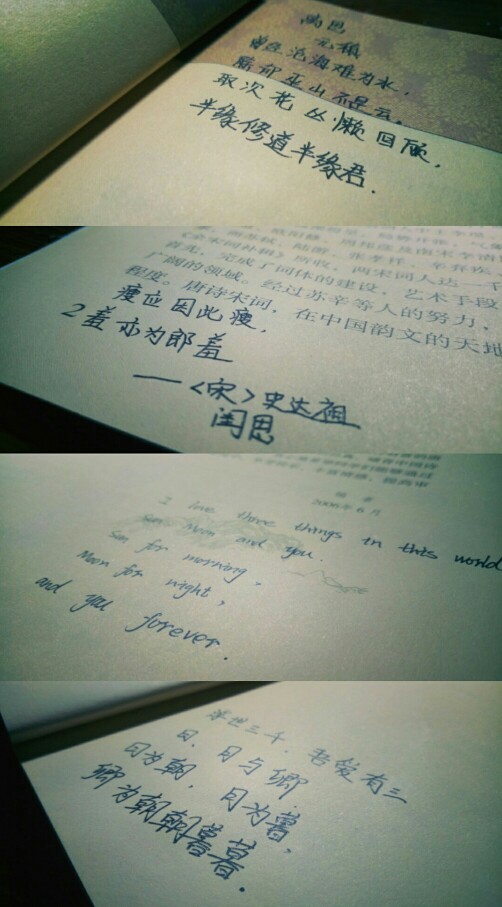 离思
元稹
曾经沧海难为水，
除却巫山不是云。
取次花丛懒回顾，
半缘修道半缘君.
首先，完成了词体的建设，艺术手段
广阔的领域。经过苏辛等人的努力，
程度。唐诗宋词，在中国韵文的天地
瘦应因此瘦，
羞亦为郎羞
——<宋>史达祖
闺思
编者
2006年6月
I love three things in this world
Sun Moon and you.
Sun for morning,
Moon for night,
and you forever.
浮世三千，吾爱有三
日、月与卿.
日为朝，月为暮，
卿为朝朝暮暮.